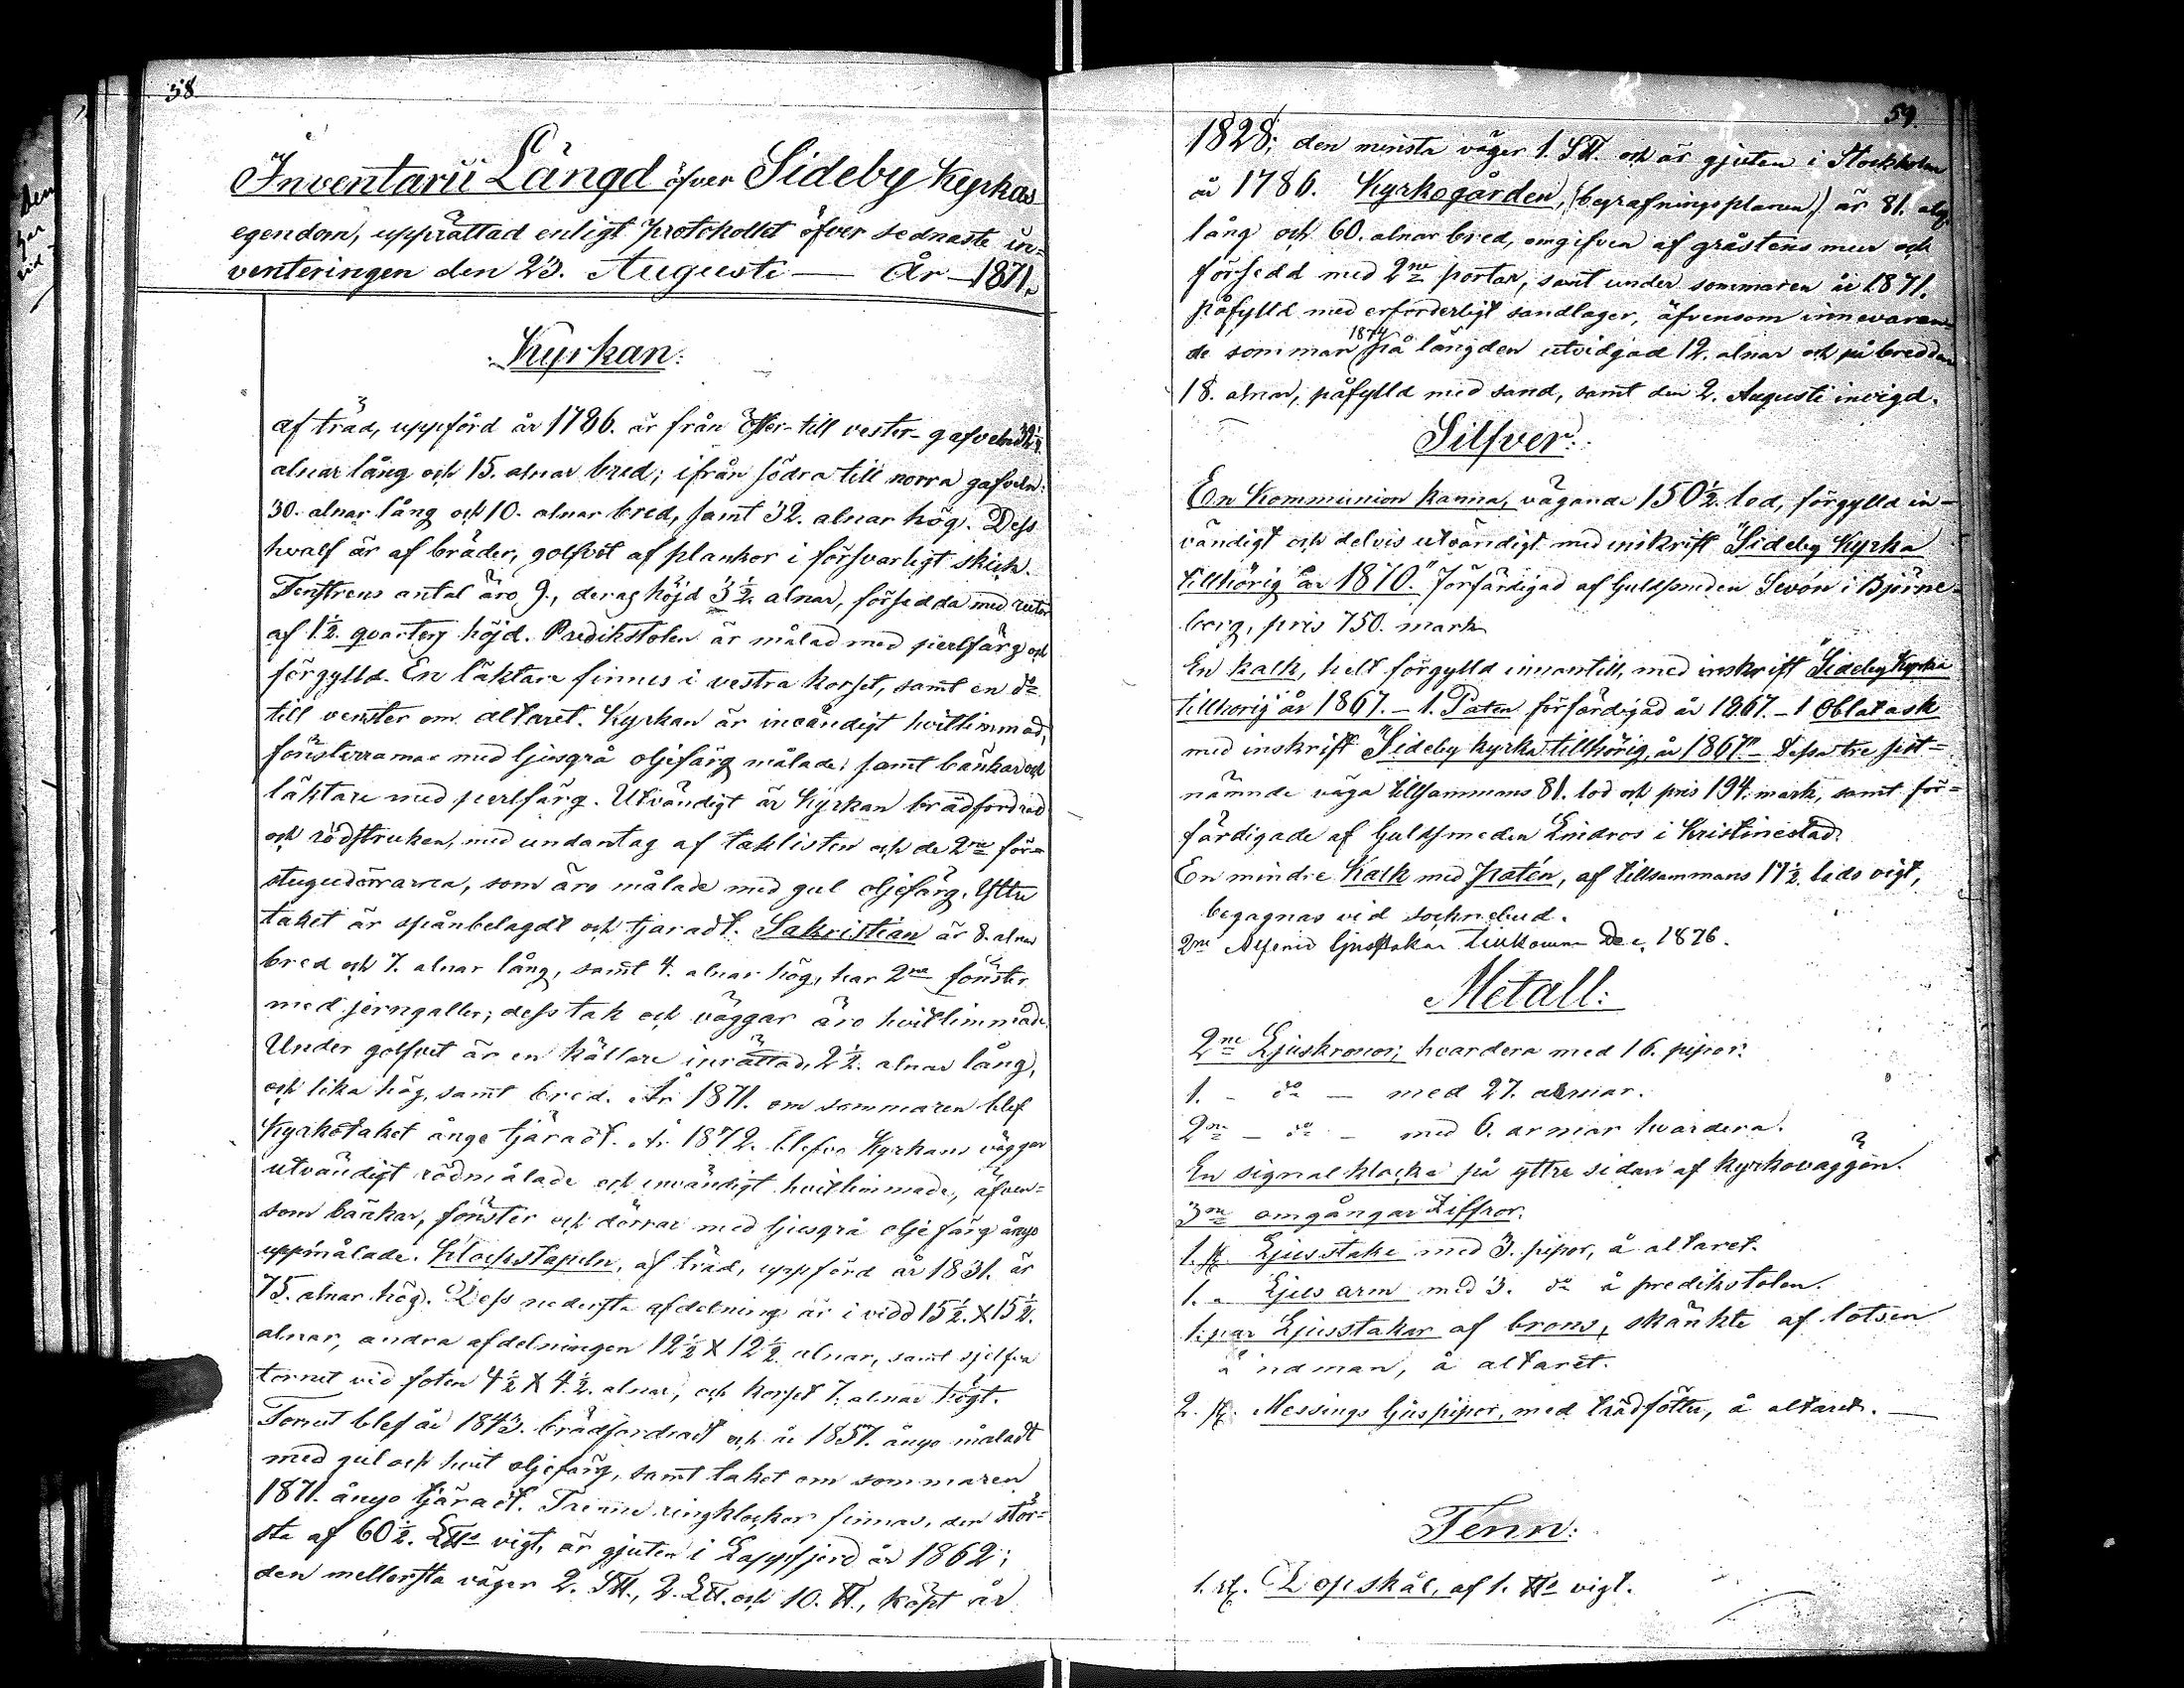 58
Inventarii Längd öfver Sideby Kyrkas
egendom, upprättad enligt Protokollet öfver sednaste in-
venteringen den 23. Augusti — År — 1871.
Kyrkan:
af träd, uppförd år 1786. är från öster- till vester-gafveln
alnar lång och 15. alnar bred; ifrån södra till norra gafveln
30. alnar lång och 10. alnar bred, samt 32. alnar hög. Dess
hvalf är af bräder, golfvet af plankor i försvarligt skick.
Fenstrens antal äro 9., deras höjd 3 1/2. alnar, försedda med rutor
af 1 1/2. qvarters höjd. Predikstolen är målad med perlfärg och
förgylld. En läktare finnes i vestra korset, samt en do
till venster om altaret. Kyrkan är invändigt hvitlimmad,
fönsterramar med ljusgrå oljefärg målade, samt bänkar och
läktare med perlfärg. Utvändigt är Kyrkan brädfordrad
och rödstruken, med undantag af taklisten och de 2ne för-
stugudörrarna, som äro målade med gul oljefärg. Yttre
taket är spånbelagdt och tjäradt. Sakristian är 8. alnar
bred och 7. alnar lång, samt 4. alnar hög, har 2ne fönster
med jerngaller; dess tak och väggar äro hvitlimmade.
Under golfvet är en källare inrättad, 2 1/2. alnar lång,
och lika hög, samt bred. År 1871. om sommaren blef
Kyrkotaket ånyo tjäradt. År 1872. blefvo Kyrkans väggar
utvändigt rödmålade och invändigt hvitlimmade, äfven-
som bänkar, fönster och dörrar med ljusgrå oljefärg ånyo
uppmålade. Klockstapeln, af träd, uppförd år 1831. är
75. alnar hög. Dess nedersta afdelning är i vidd 15 1/2. X 15 1/2.
alnar, andra afdelningen 12 1/2 X 12 1/2. alnar, samt sjelfva
tornet vid foten 4 1/2 X 4 1/2. alnar, och korset 7. alnar högt.
Tornet blef år 1843. brädfordradt och år 1857. ånyo måladt
med gul och hvit oljefärg, samt taket om sommaren
1871. ånyo tjäradt. Trenne ringklockor finnas, den stör-
sta af 60 1/2. L℔s vigt, är gjuten i Lappfjerd år 1862;
den mellersta väger 2. S℔., 2. L℔. och 10. ℔., köpt år
59.
1828; den minsta väger 1. S℔. och är gjuten i Stockholm
år 1786. Kyrkogården, (begrafningsplanen) är 81. aln.
lång och 60. alnar bred, omgifven af gråstens mur och
försedd med 2ne portar, samt under sommaren år 1871.
påfylld med erforderligt sandlager, äfvensom innevaran-
de sommar 1874 på längden utvidgad 12. alnar och på bredden
18. alnar, påfylld med sand, samt den 2. Augusti invigd.
Silfver:
En Kommunion kanna, vägande 150 1/2. lod, förgylld in-
vändigt och delvis utvändigt med inskrift "Sideby Kyrka
tillhörig år 1870." Förfärdigad af Guldsmeden Sevón i Björne-
borg, pris 750. mark
En kalk, helt förgylld innantill, med inskrift "Sideby Kyrka
tillhörig år 1867. — 1. Paten förfärdigad år 1867. — 1 Oblatask
med inskrift "Sideby kyrka tillhörig, år 1867" — Dessa tre sist-
nämnde väga tillsammans 81. lod och pris 194. mark, samt för-
färdigade af Guldsmeden Lindros i Kristinestad.
En mindre Kalk med Patén, af tillsammans 17 1/2. lods vigt,
begagnas vid socknebud.
2ne Alfenid ljusstakar tillkomna Dec. 1876.
Metall:
2ne Ljuskronor; hvardera med 16. pipor.
1. - do — med 27. armar.
2ne — do — med 6. armar hvardera.
En signalklocka på yttre sidan af kyrkoväggen.
3ne omgångar Ziffror.
1. st. Ljusstake med 3. pipor, å altaret.
1. " Ljus arm med 3. do å predikstolen.
1. par Ljusstakar af brons, skänkte af lotsen
Åndman, å altaret.
2. st. Messings ljuspipor, med trädfötter, å altaret. —
Tenn:
1. st. Dopskål, af 1. ℔s vigt.